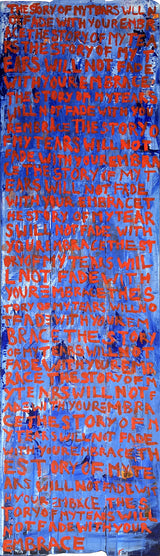 THE STORY OF MY TEARS WILL
NOT FADE WITH YOUR EMBRACE
THE STORY OF MY T
EARS WILL NOT FADE
WITH YOUR EMBRACE
THE STORY OF MY TEAR
S WILL NOT FADE WITH YO
UR EMBRACE THE STORY
OF MY TEARS WILL NOT
FADE WITH YOUR EMBR
ACE THE STORY OF MY T
EARS WILL NOT FADE
WITH YOUR EMBRACE T
HE STORY OF MY TEAR
S WILL NOT FADE WITH
YOUR EMBRACE THE ST
ORY OF MY TEARS WILL
NOT FADE WITH
YOUR EMBRACE THE S
TORY OF MY TEARS WILL NO
T FADE WITH YOUR EM
BRACE THE STORY
OF MY TEARS WILL NOT
FADE WITH YOUR EMB
RACE THE STORY OF M
Y TEARS WILL NOT
FADE WITH YOUR EMBRA
CE THE STORY OF
MY TEARS WILL NOT FADE
WITH YOUR EMBRACE TH
E STORY OF MY TE
ARS WILL NOT FADE WITH
YOUR EMBRACE THE S
TORY OF MY TEARS WILL
NOT FADE WITH YOUR
EMBRACE